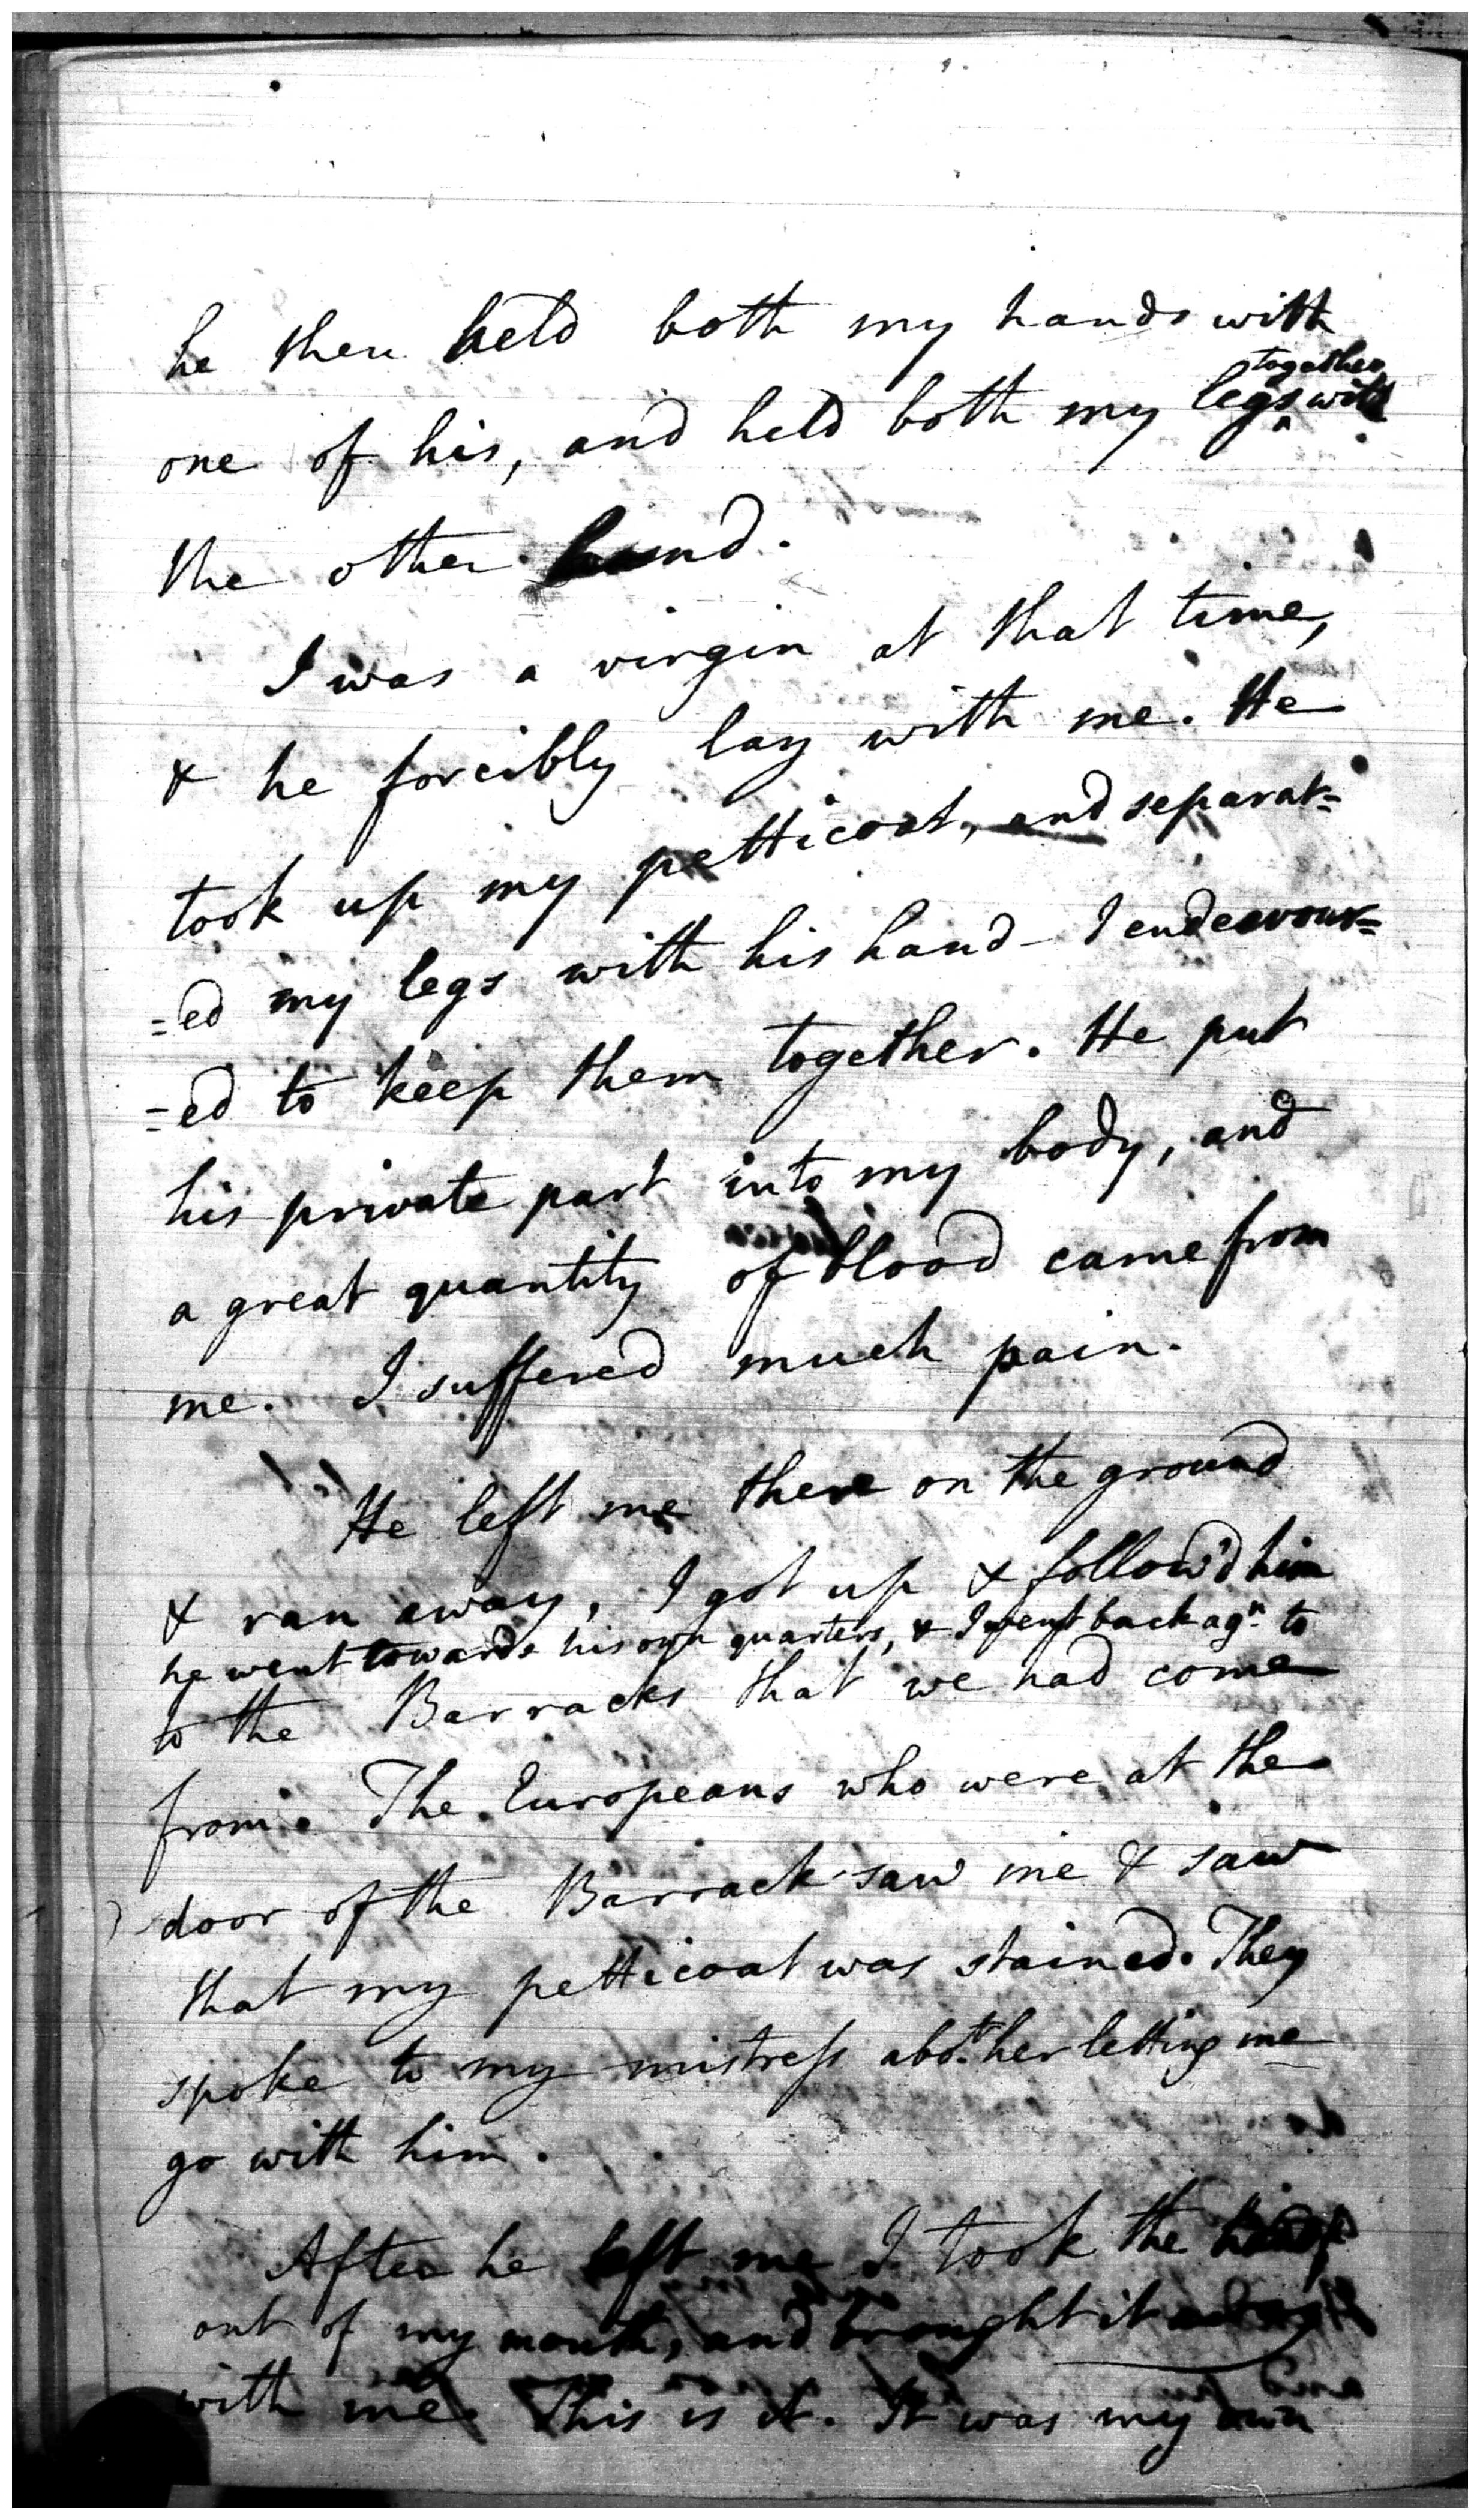 he then held both my hands with
together
one of his, and held both my legs with
the other hand.
I was a virgin at that time,
& he forcibly lay with me. He
took up my petticoat, and separat=
=ed my legs with his hand - I endeavour=
=ed to keep them together. He put
his private part into my body, and
a great quantity of blood came from
me. I suffered much pain.
He left me there on the ground
& ran away, I got up & follow'd him
he went towards his own quarters, & I went back agn. to
to the Barracks that we had come
from. The Europeans who were at the
door of the Barrack saw me & saw
that my petticoat was stained. They
spoke to my mistress abot. her letting me
go with him.
After he left me I took the
out of my mouth, and brought it
with me. This is it. It was my own